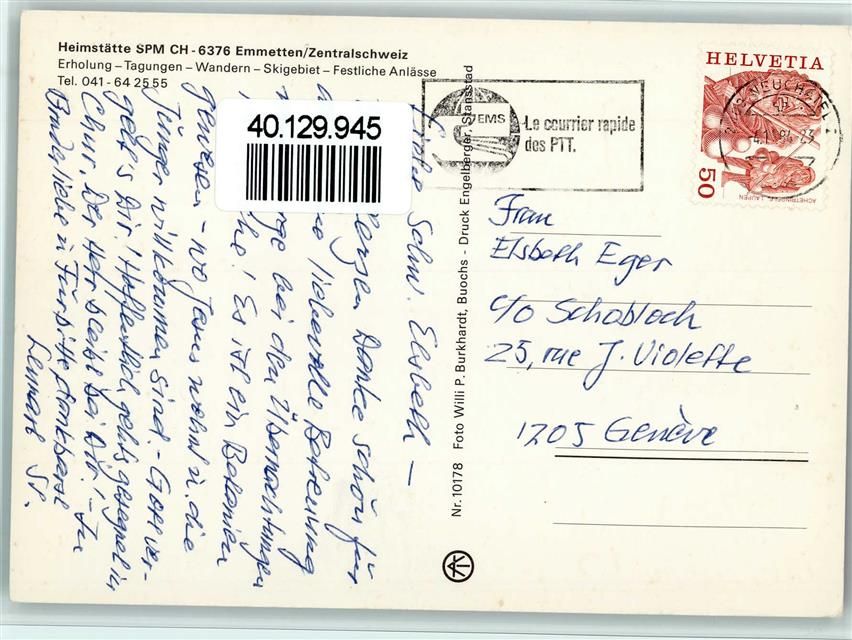 Heimstätte SPM CH-6376 Emmetten/Zentralschweiz
Erholung – Tagungen – Wandern – Skigebiet – Festliche Anlässe
Tel. 041 - 64 25 55
40.129.945
EMS
Le courrier rapide
des PTT.
HELVETIA
50
ACHETRINGELE LAUFEN
NEUCHATEL
Nr. 10178 Foto Willi P. Burkhardt, Buochs - Druck Engelberger, Stansstad
Frau
Elsbeth Eger
c/o Schobloch
25, rue J. Violette
1205 Genève
Liebe Schw. Elsbeth –
Herzen Danke schön für
liebevolle Betreuung
bei den Übernachtungen
Es ist ein Betanien
gewesen – wo Jesus wohnt u. die
Jünger willkommen sind. – Gott ver-
gelt's Dir! Hoffentlich gehts gesegnet in
Chur. Der Herr bleibt bei Dir! – In
Bruderliebe u. Fürbitte dankbarst